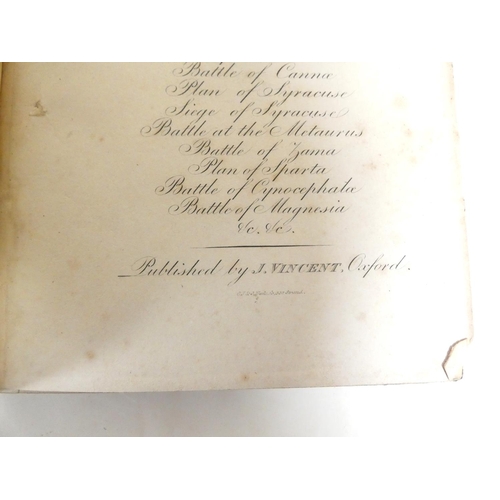 Battle of Cannæ
Plan of Syracuse
Siege of Syracuse
Battle at the Metaurus
Battle of Zama
Plan of Sparta
Battle of Cynocephalæ
Battle of Magnesia
&c. &c.
Published by J. VINCENT, Oxford.